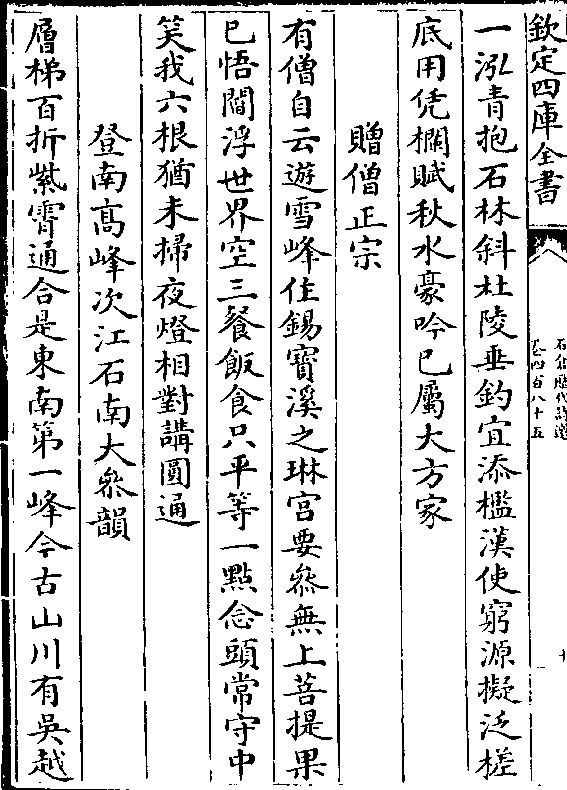 欽定四庫全書
卷四百八十五
一泓青抱石林斜杜陵垂釣宜添檻漢使窮源擬泛槎
底用凭欄賦秋水豪吟已屬大方家
贈僧正宗
有僧自云遊雪峰住錫寶溪之琳宫要叅無上菩提果
已悟閻浮世界空三餐飯食只平等一點念頭常守中
笑我六根猶未掃夜燈相對講圓通
登南髙峰次江石南大叅韻
層梯百折紫霄通合是東南第一峰今古山川有吳越